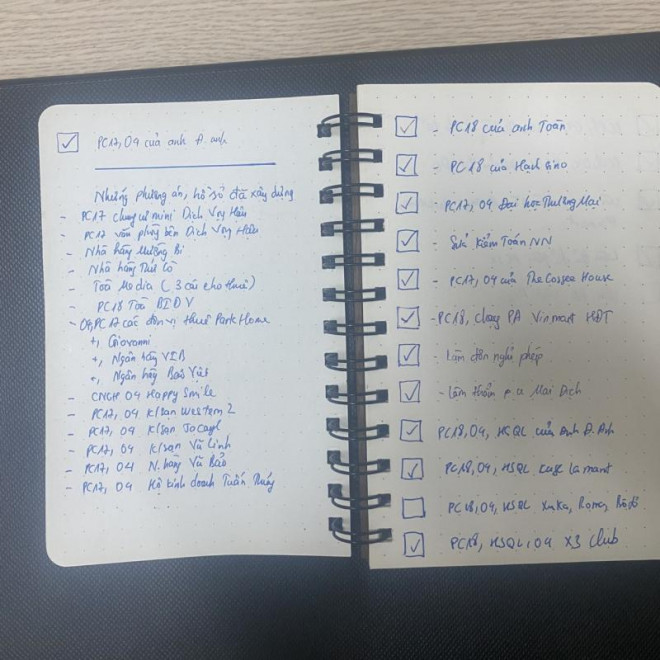 PC17, 04 của anh Đ. anh
Những phương án, hồ sơ đã xây dựng
- PC17 chung cư mini Dịch Vọng Hậu
- PC17 văn phòng bên Dịch Vọng Hậu
- Nhà hàng Mường Bi
- Nhà hàng
- Toà Media (3 cái cho thuê)
PC18 Toà BIDV
- 04, PC17 các đơn vị thuê Park Home
+, Giovanni
+, Ngân hàng VIB
+, Ngân hàng Bảo Việt
- CNCH 04 Happy Smile
- PC17, 04 K/sạn Western 2
- PC17, 04 K/sạn
- PC17, 04 K/sạn Vũ Linh
- PC17, 04 N.hàng Vũ Bảo
- PC17, 04 Hộ kinh doanh Tuấn Thúy
- PC18 của anh Toàn
- PC18 của Hạch
- PC17, 04 Đại học Thương Mại
- Kiểm Toán NN
- PC17, 04 của The Coffee House
- PC18, PA Vinmart HĐT
- Làm đơn nghỉ phép
- Làm p.a Mai Dịch
PC18, 04, HSQL của Anh Đ. Anh
PC18, 04, HSQL La mant
PC18, 04, HSQL
PC18, HSQL, 04 X3 Club